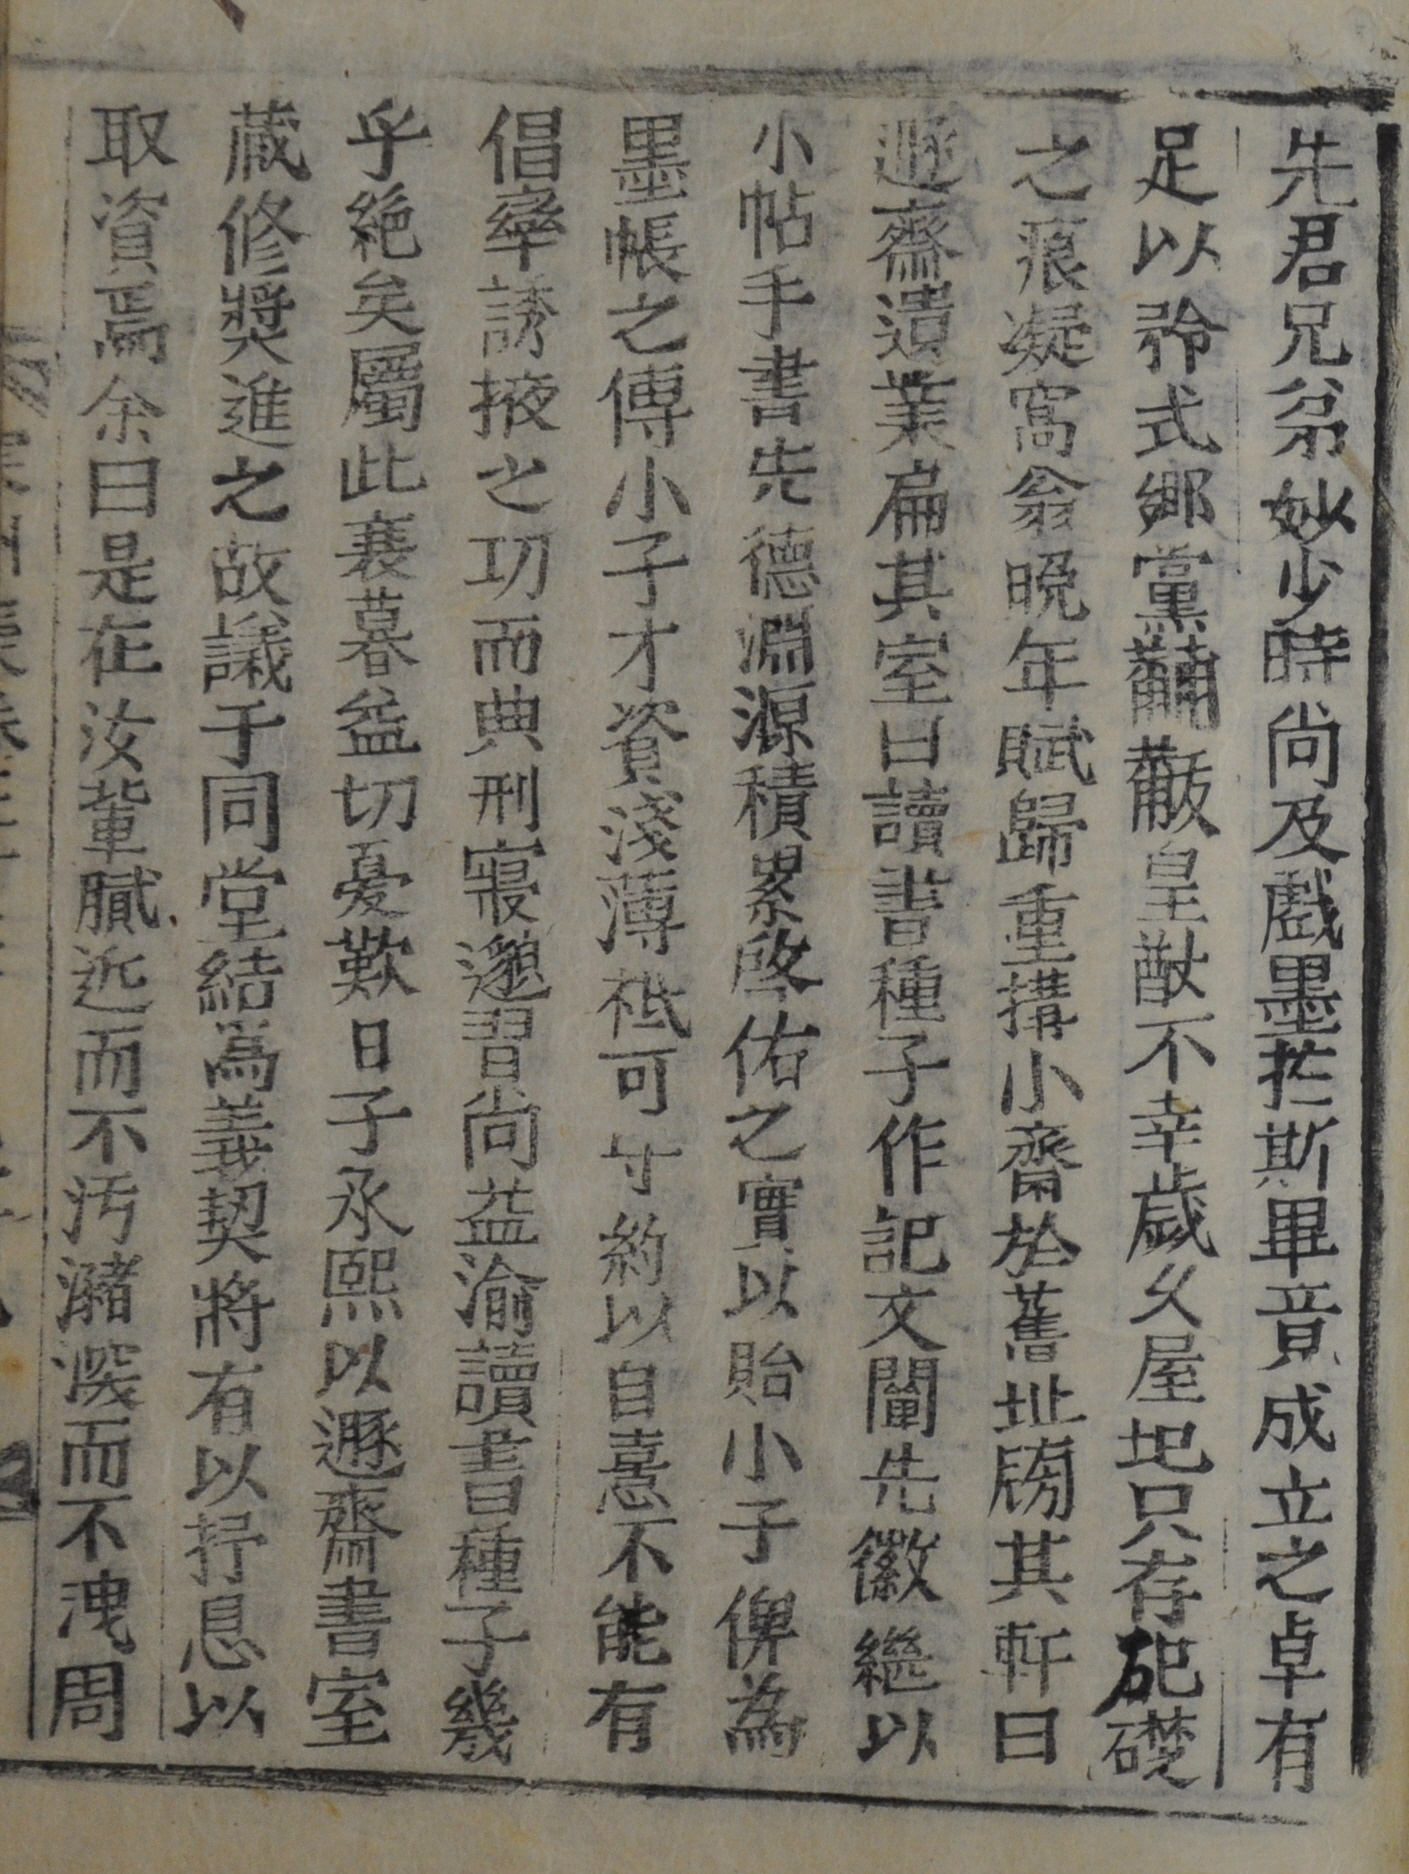 先君兄弟妙少時尚及戱墨於斯畢竟成立之卓有
足以矜式鄕黨黼黻皇猷不幸歲久屋圮只存砌礎
之痕凝窩翁晩年賦歸重搆小齋於舊址牓其軒曰
遯齋遺業扁其室曰讀書種子作記文闡先徽繼以
小帖手書先德淵源積累啓佑之實以貽小子俾為
墨帳之傳小子才資淺薄秪可寸約以自憙不能有
倡率誘掖之功而典刑寢邈習尙益渝讀書種子幾
乎絶矣屬此衰暮益切憂歎日子永熙以遯齋書室
蔵修奬進之故議于同堂結爲義契將有以抒息以
取資焉余曰是在汝輩膩近而不汚瀦深而不洩周